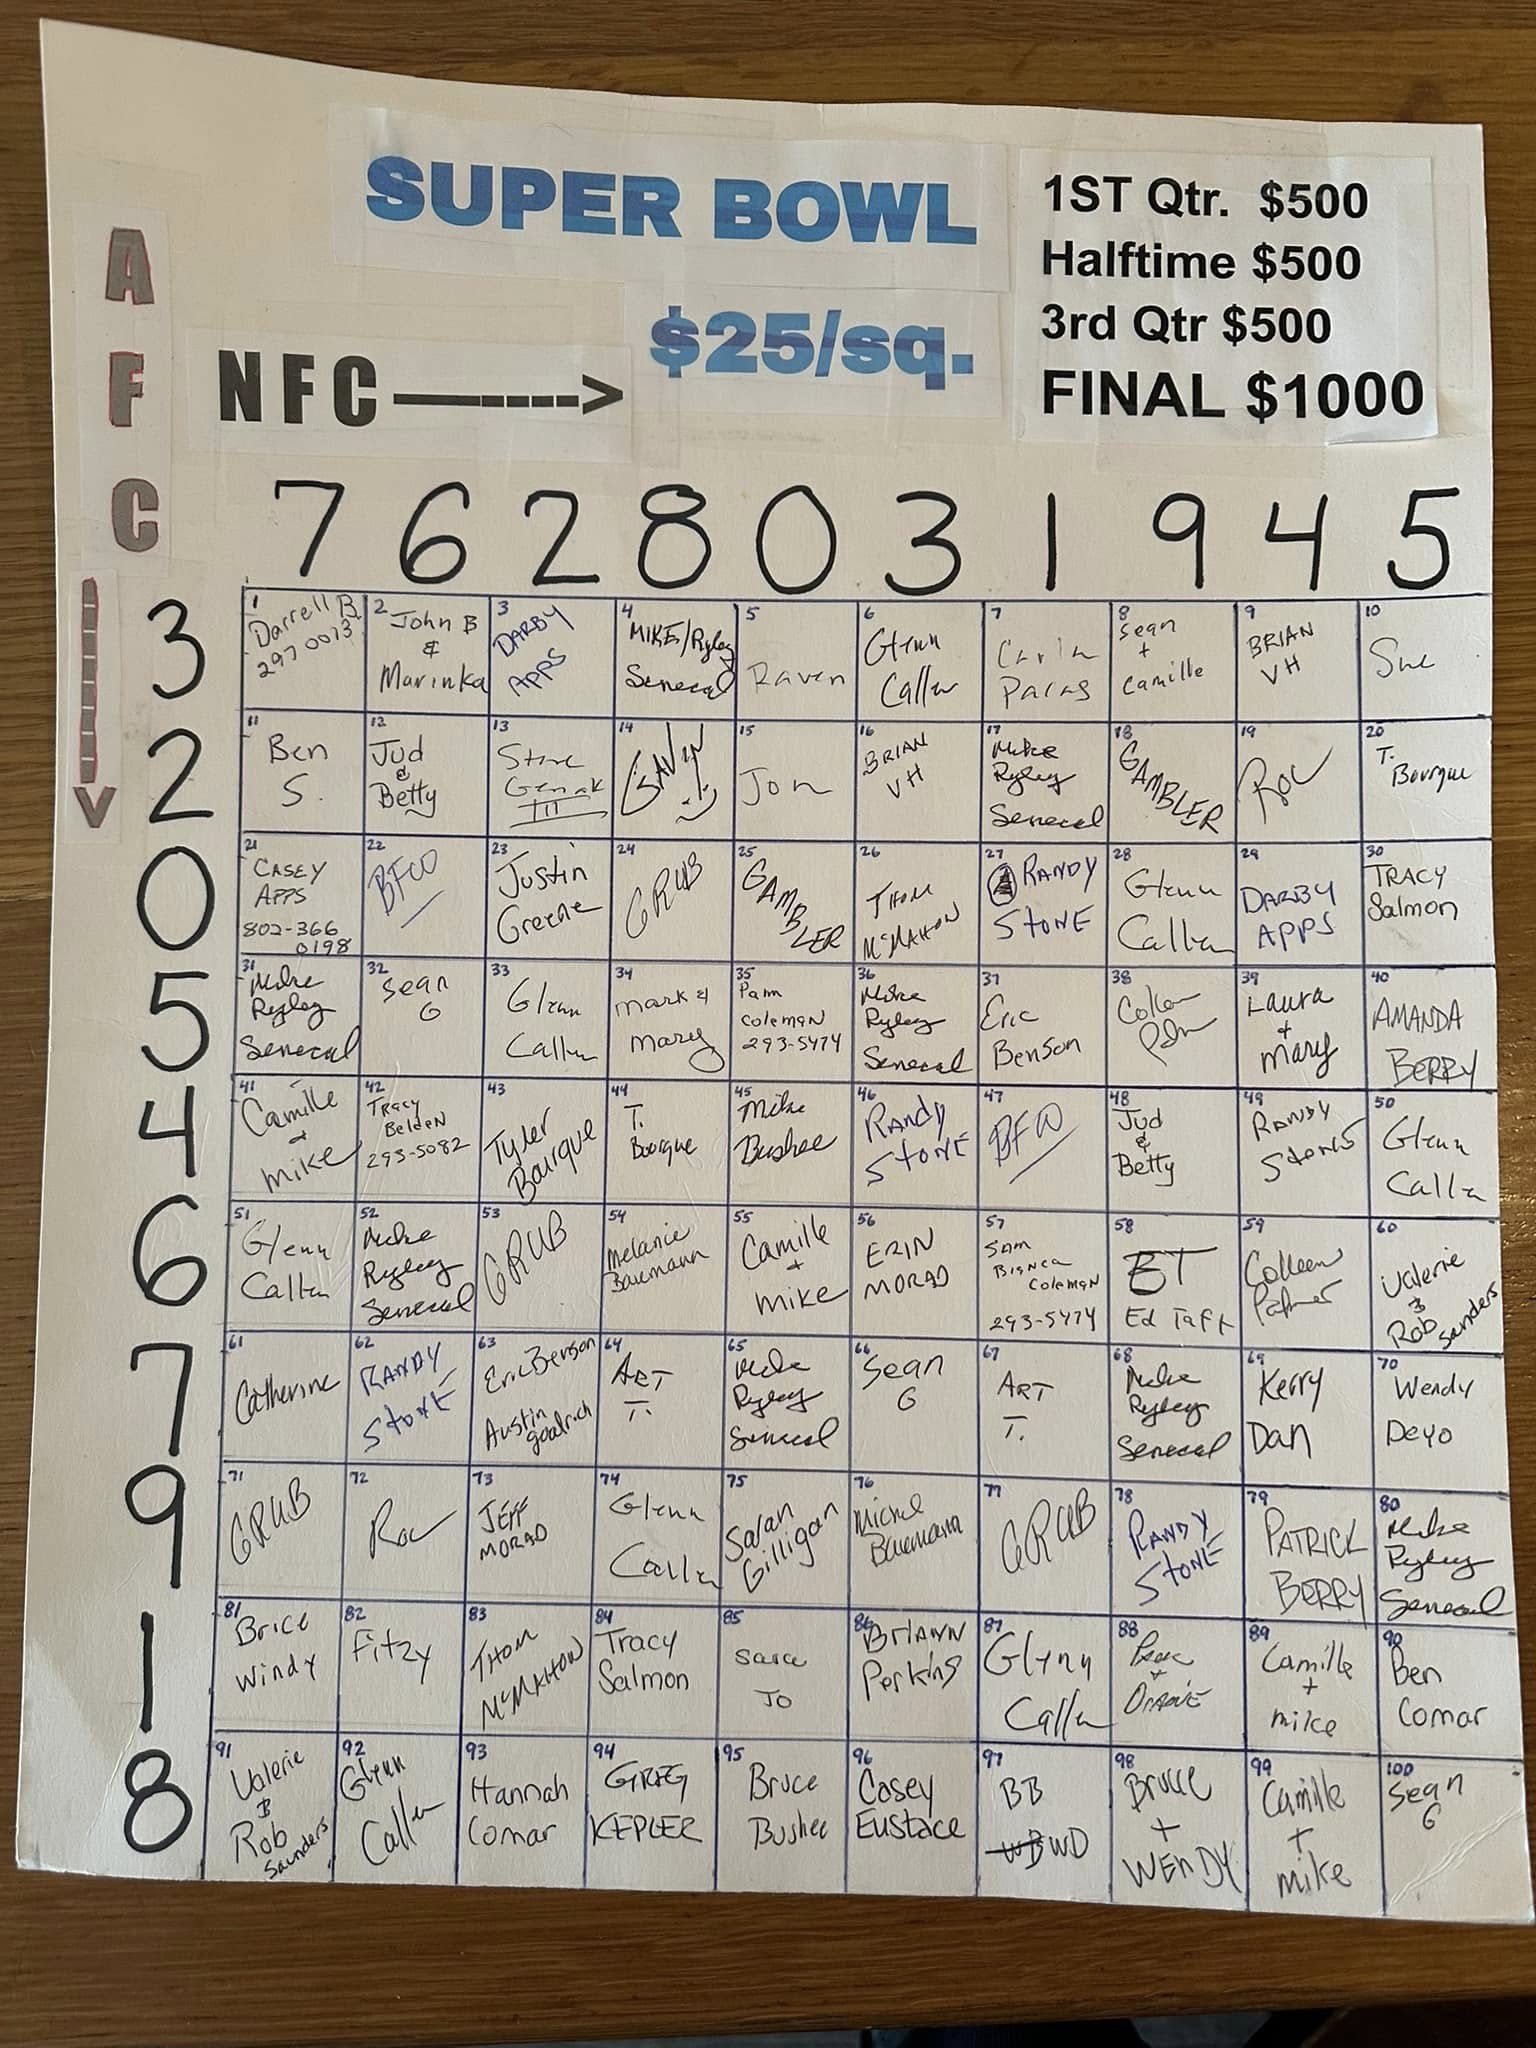 SUPER BOWL
$25/sq.
1ST Qtr. $500
Halftime $500
3rd Qtr $500
FINAL $1000
AFC
NFC ------->
7 6 2 8 0 3 1 9 4 5
3
1 Darrell B. 297 0073
2 John B & Marinka
3 DARBY APPS
4 MIKE/Ryley Senecal
5 Raven
6 Glenn Callan
7 Carla Paras
8 Sean + Camille
9 BRIAN VH
10 Sue
2
11 Ben S.
12 Jud & Betty
13 Steve Genak III
14 GAVIN
15 Jon
16 BRIAN VH
17 Mike Ryley Senecal
18 GAMBLER
19 Roc
20 T. Bourque
0
21 CASEY APPS 802-366 0198
22 BFCO
23 Justin Greene
24 GRUB
25 GAMBLER
26 THOM McMAHON
27 RANDY STONE
28 Glenn Callan
29 DARBY APPS
30 TRACY Salmon
5
31 Mike Ryley Senecal
32 Sean G
33 Glenn Callan
34 Mark & Mary
35 Pam Coleman 293-5474
36 Mike Ryley Senecal
37 Eric Benson
38 Colleen
39 Laura + Mary
40 AMANDA BERRY
4
41 Camille + Mike
42 Tracy Belden 293-5082
43 Tyler Bourque
44 T. Bourque
45 Mike Bushee
46 RANDY STONE
47
48 Jud & Betty
49 RANDY STONE
50 Glenn Callan
6
51 Glenn Callan
52 Mike Ryley Senecal
53 GRUB
54 Melanie Baumann
55 Camille + Mike
56 ERIN MORAD
57 Sam Bianca Coleman 293-5474
58 ET Ed Taft
59 Colleen Palmer
60 Valerie & Rob Saunders
7
61 Catherine
62 RANDY STONE
63 Eric Benson Austin Goodrich
64 ART T.
65 Mike Ryley Senecal
66 Sean G
67 ART T.
68 Mike Ryley Senecal
69 Kerry Dan
70 Wendy Deyo
9
71 GRUB
72 Roc
73 JEFF MORAD
74 Glenn Callan
75 Sarah Gilligan
76 Baumann
77 GRUB
78 RANDY STONE
79 PATRICK BERRY
80 Mike Ryley Senecal
1
81 Brice Windy
82 Fitzy
83 THOM McMAHON
84 Tracy Salmon
85 Sara Jo
86 BriAnn Perkins
87 Glenn Callan
88
89 Camille + Mike
90 Ben Comar
8
91 Valerie & Rob Saunders
92 Glenn Callan
93 Hannah Comar
94 GREG KEPLER
95 Bruce Bushee
96 Casey Eustace
97 BB WD
98 Bruce + WENDY
99 Camille + Mike
100 Sean G